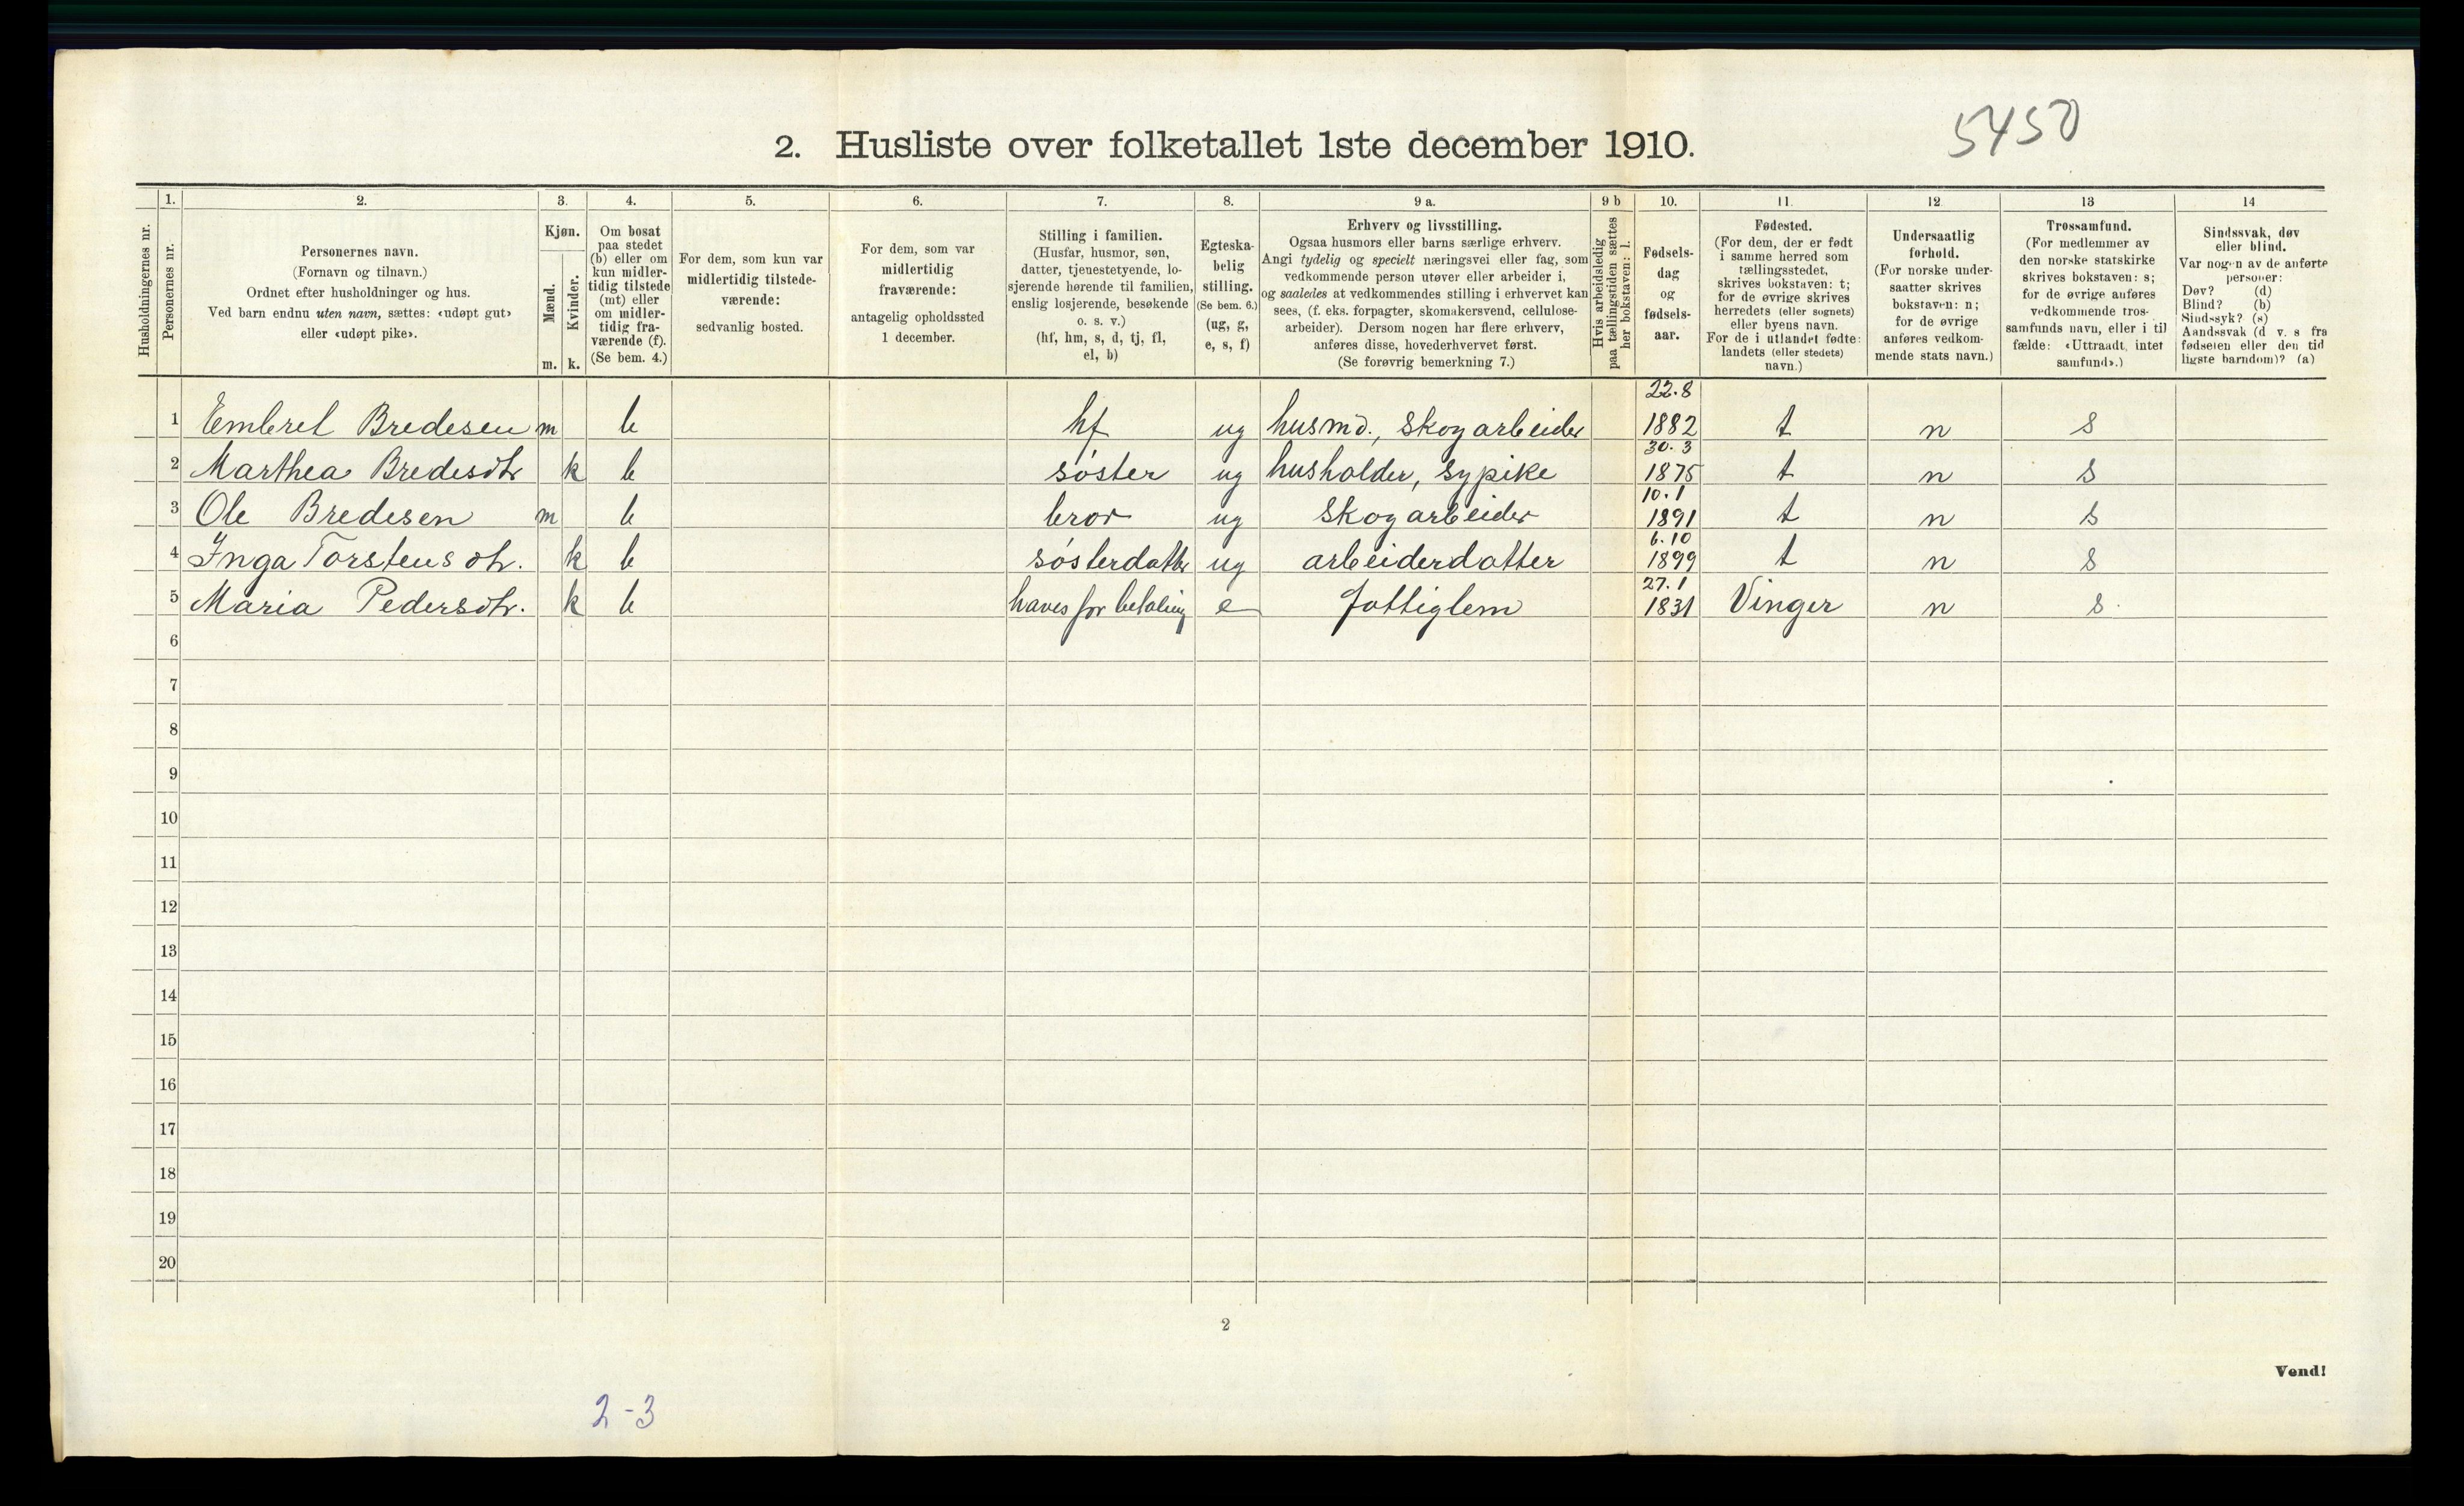 5450
2. Husliste over folketallet 1ste december 1910.
Husholdningernes nr.
1.
Personernes nr.
2.
Personernes navn.
(Fornavn og tilnavn.)
Ordnet efter husholdninger og hus.
Ved barn endnu uten navn, sættes: «udøpt gut»
eller «udøpt pike».
3.
Kjøn.
Mænd.
Kvinder.
m. k.
4.
Om bosat
paa stedet
(b) eller om
kun midler-
tidig tilstede
(mt) eller
om midler-
tidig fra-
værende (f).
(Se bem. 4.)
5.
For dem, som kun var
midlertidig tilstede-
værende:
sedvanlig bosted.
6.
For dem, som var
midlertidig
fraværende:
antagelig opholdssted
1 december.
7.
Stilling i familien.
(Husfar, husmor, søn,
datter, tjenestetyende, lo-
sjerende hørende til familien,
enslig losjerende, besøkende
o. s. v.)
(hf, hm, s, d, tj, fl,
el, b)
8.
Egteska-
belig
stilling.
(Se bem. 6.)
(ug, g,
e, s, f)
9 a.
Erhverv og livsstilling.
Ogsaa husmors eller barns særlige erhverv.
Angi tydelig og specielt næringsvei eller fag, som
vedkommende person utøver eller arbeider i,
og saaledes at vedkommendes stilling i erhvervet kan
sees, (f. eks. forpagter, skomakersvend, cellulose-
arbeider). Dersom nogen har flere erhverv,
anføres disse, hovederhvervet først.
(Se forøvrig bemerkning 7.)
9 b
Hvis arbeidsledig
paa tællingstiden sættes
her bokstaven: l.
10.
Fødsels-
dag
og
fødsels-
aar.
11.
Fødested.
(For dem, der er født
i samme herred som
tællingsstedet,
skrives bokstaven: t;
for de øvrige skrives
herredets (eller sognets)
eller byens navn.
For de i utlandet fødte:
landets (eller stedets)
navn.)
12
Undersaatlig
forhold.
(For norske under-
saatter skrives
bokstaven: n;
for de øvrige
anføres vedkom-
mende stats navn.)
13
Trossamfund.
(For medlemmer av
den norske statskirke
skrives bokstaven: s;
for de øvrige anføres
vedkommende tros-
samfunds navn, eller i til
fælde: «Uttraadt, intet
samfund».)
14
Sindssvak, døv
eller blind.
Var nogen av de anførte
personer:
Døv? (d)
Blind? (b)
Sindssyk? (s)
Aandssvak (d v. s fra
fødselen eller den tid
ligste barndom)? (a)
1 Embret Bredesen m b hf ug husmd., skogarbeider 22.8 1882 t n s
2 Marthea Bredesdtr k b søster ug husholder, sypike 30.3 1875 t n s
3 Ole Bredesen m b bror ug skogarbeider 10.1 1891 t n s
4 Inga Torstensdtr. k b søsterdatter ug arbeiderdatter 6.10 1899 t n s
5 Maria Pedersdtr. k b haves for betaling e fattiglem 27.1 1831 Vinger n s.
6
7
8
9
10
11
12
13
14
15
16
17
18
19
20
2
Vend!
2-3